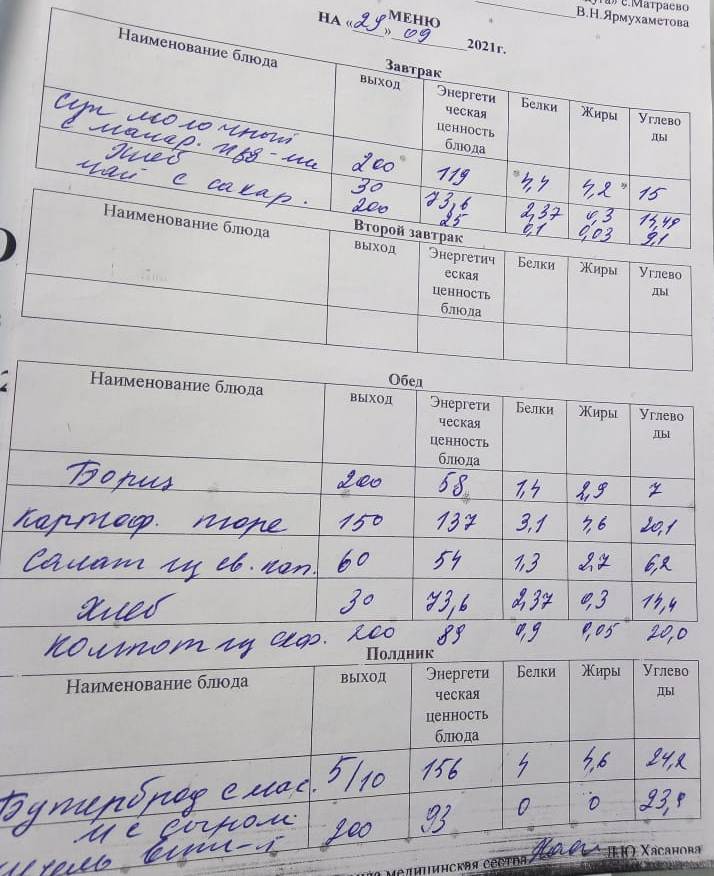 с.Матраево
В.Н.Ярмухаметова
МЕНЮ
НА «29» 09 2021г.
Завтрак
Наименование блюда выход Энергети ческая ценность блюда Белки Жиры Углево ды
Суп молочный
с макар. изд-ми 200 119 4,4 4,2 15
Хлеб 30 73,6 2,37 0,3 14,49
чай с сахар. 200 25 0,1 0,03 9,1
Второй завтрак
Наименование блюда выход Энергетич еская ценность блюда Белки Жиры Углево ды
Обед
Наименование блюда выход Энергети ческая ценность блюда Белки Жиры Углево ды
Борщ 200 58 1,4 2,9 7
Картоф. пюре 150 137 3,1 4,6 20,1
Салат из св. кап. 60 54 1,3 2,7 6,2
Хлеб 30 73,6 2,37 0,3 14,4
Компот из 200 89 0,9 0,05 20,0
Полдник
Наименование блюда выход Энергети ческая ценность блюда Белки Жиры Углево ды
Бутерброд с мас. 5/10 156 4 4,6 24,2
и с сыром
200 93 0 0 23,9
медицинская сестра Хасанова